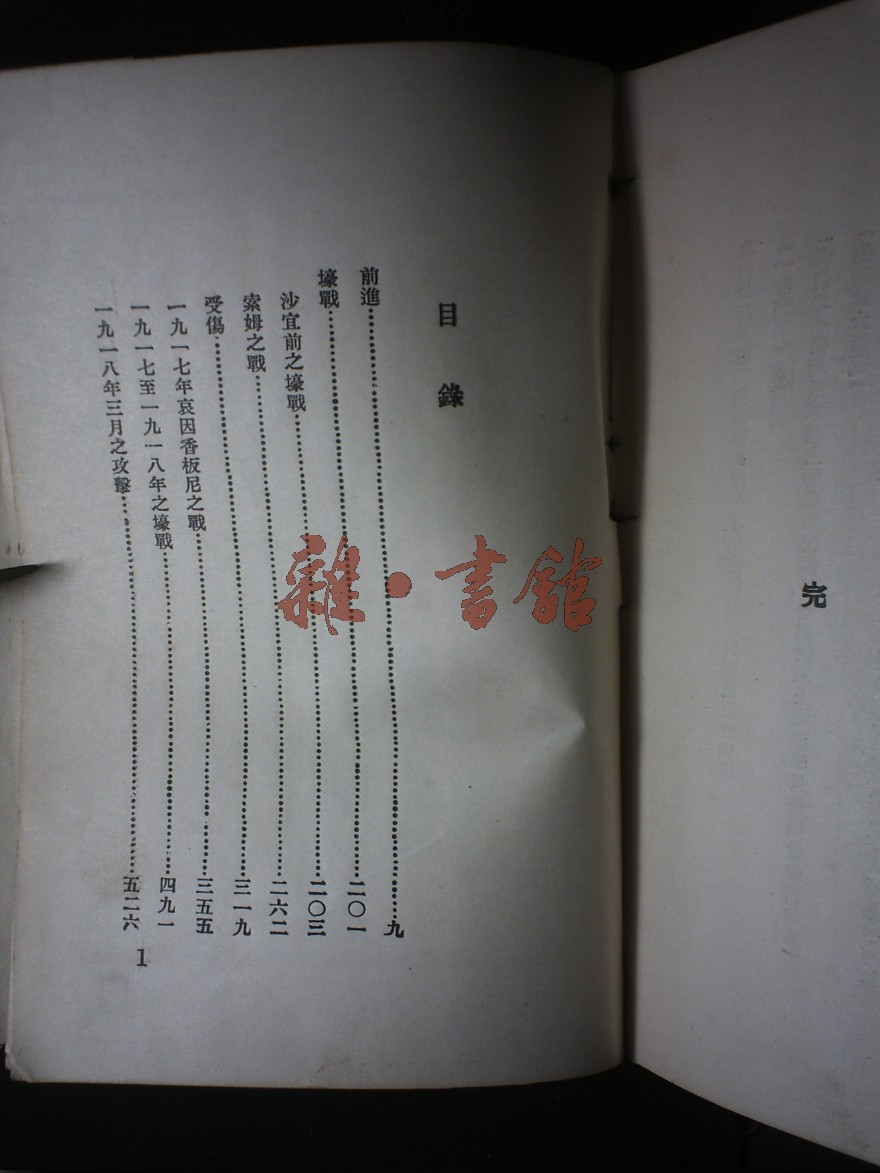 完
目錄
前進……九
壕戰……二〇一
沙宜前之壕戰……二〇三
索姆之戰……二六二
受傷……三一九
一九一七年哀因香板尼之戰……三五五
一九一七至一九一八年之壕戰……四九一
一九一八年三月之攻擊……五二六
1
雜·書館